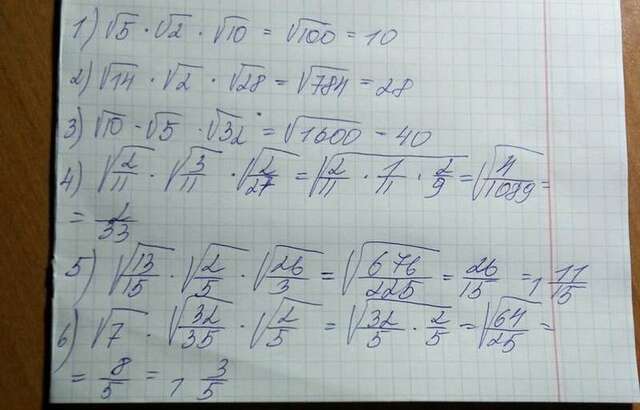 1) √5 · √2 · √10 = √100 = 10
2) √14 · √2 · √28 = √784 = 28
3) √10 · √5 · √32 = √1600 = 40
4) √(2/11) · √(3/11) · √(2/27) = √(2/11 · 1/11 · 2/9) = √(4/1089) =
= 2/33
5) √(13/15) · √(2/5) · √(26/3) = √(676/225) = 26/15 = 1 11/15
6) √7 · √(32/35) · √(2/5) = √(32/5 · 2/5) = √(64/25) =
= 8/5 = 1 3/5